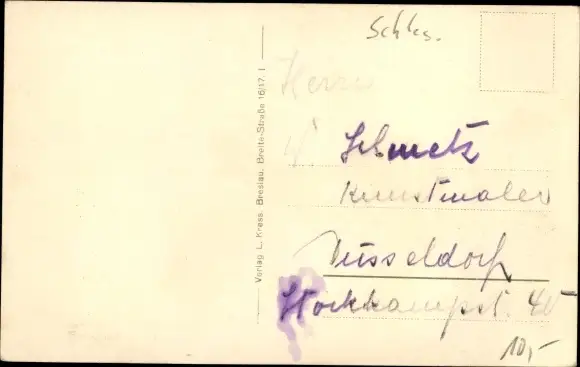 Schles.
Verlag L. Kress. Breslau. Breite-Straße 16/17. I
Herrn
W Schmetz
Kunstmaler
Düsseldorf
Stockkampst. 45
10,-